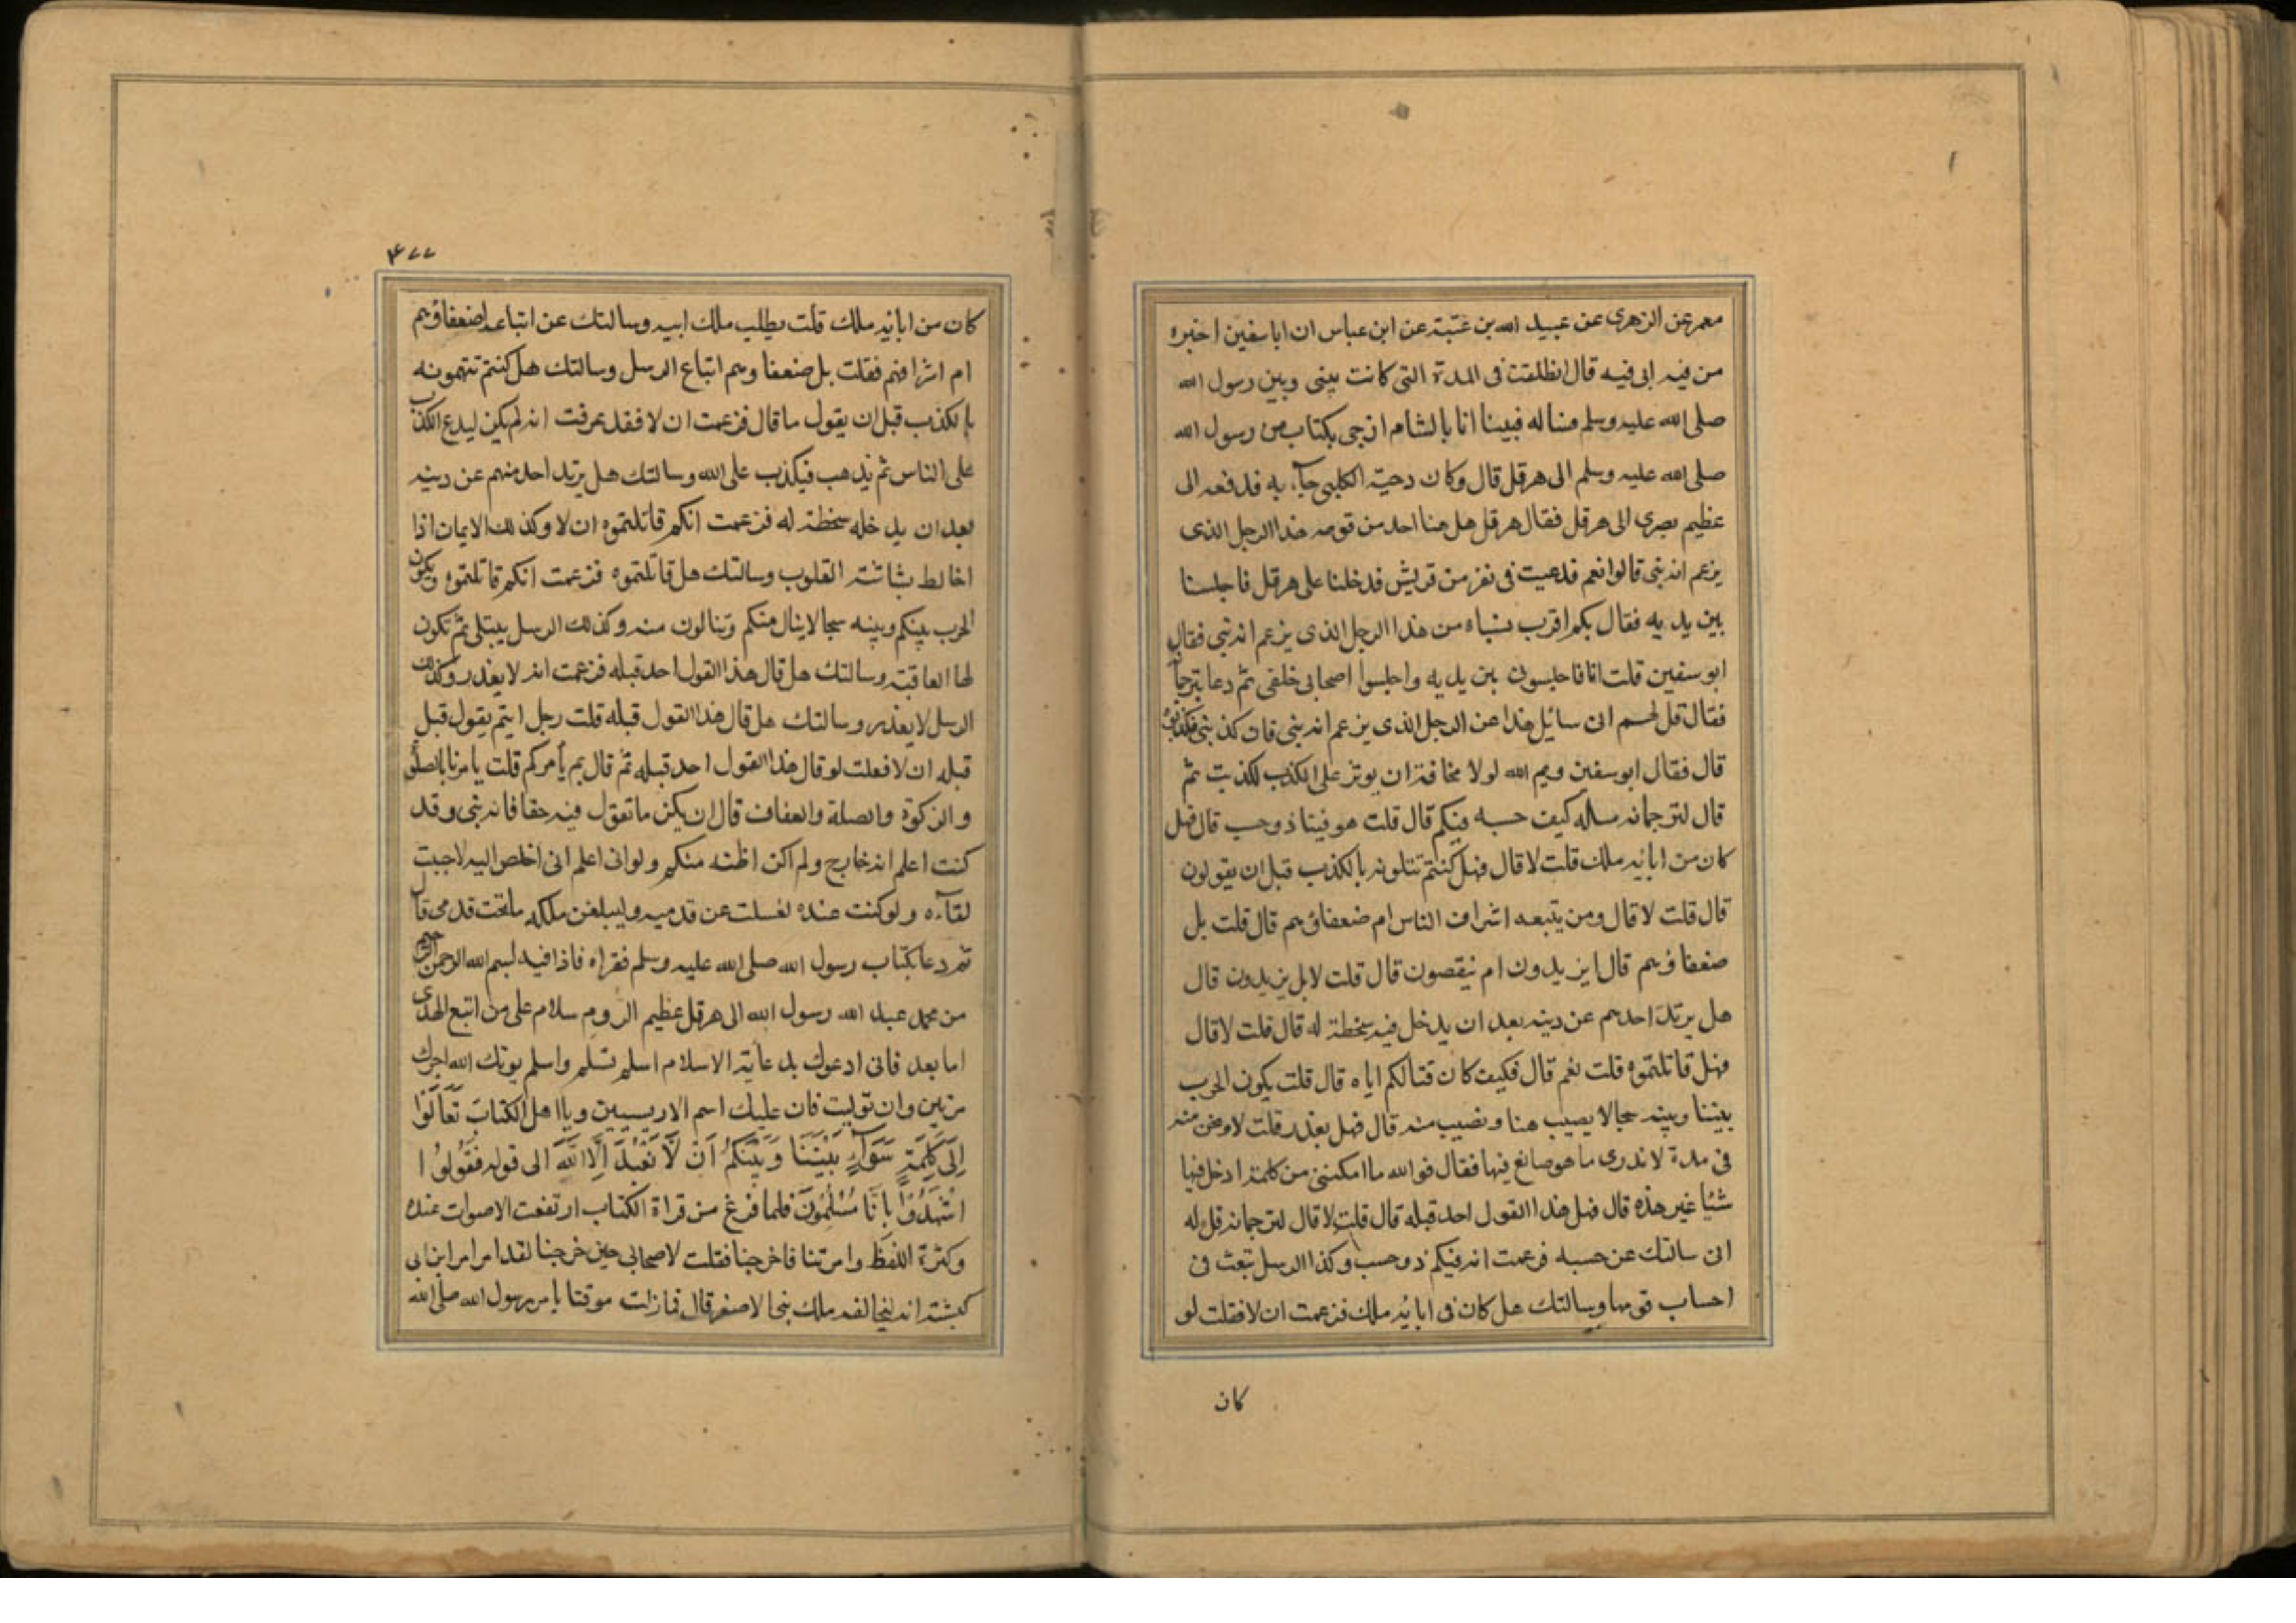 معمر عن الزهرى عن عبيد الله بن عتبة عن ابن عباس ان ابا سفين اخبره
من فيه الى فيه قال انطلقت فى المدة التى كانت بينى وبين رسول الله
صلى الله عليه وسلم فبينا انا بالشام اذ جى بكتاب من رسول الله
صلى الله عليه وسلم الى هرقل قال وكان دحية الكلبى جآء به فدفعه الى
عظيم بصرى الى هرقل فقال هرقل هل هنا احد من قومه هذا الرجل الذى
يزعم انه نبى قالوا نعم فدعيت فى نفر من قريش فدخلنا على هرقل فاجلسنا
بين يديه فقال بكم اقرب نسباه من هذا الرجل الذى يزعم انه نبى فقال
ابو سفين قلت انا فاجلسون بين يديه واجلسوا اصحابى خلفى ثم دعا بترجما
فقال قل لهم انى سائل هذا عن الرجل الذى يزعم انه نبى فان كذبنى فكذبوه
قال فقال ابو سفين ويم الله لولا مخافة ان يوثر على الكذب لكذبت ثم
قال لترجمانه ساله كيف حسبه فيكم قال قلت هو فينا ذو حسب قال فهل
كان من ابائه ملك قلت لا قال فهل كنتم تتلونه بالكذب قبل ان يقولون
قال قلت لا قال ومن يتبعه اشراف الناس ام ضعفاؤهم قال قلت بل
ضعفاؤهم قال ايزيدون ام ينقصون قال قلت لا بل يزيدون قال
هل يرتد احدهم عن دينه بعد ان يدخل فيه سخطة له قال قلت لا قال
فهل قاتلتموه قلت نعم قال فكيف كان قتالكم اياه قال قلت يكون الحرب
بيننا وبينه سجالا يصيب منا ونصيب منه قال فهل يغدر قلت لا ونحن منه
فى مدة لا ندرى ما هو صانع فيها فقال فوالله ما امكننى من كلمة ادخل فيها
شيًا غير هذه قال فهل هذا القول احد قبله قال قلت لا قال لترجمانه قل له
انى سالتك عن حسبه فزعمت انه فيكم ذو حسب وكذا الرسل تبعث فى
احساب قومها وسالتك هل كان فى ابائه ملك فزعمت ان لا فقلت لو
كان
٤٧٧
كان من ابائه ملك قلت يطلب ملك ابيه وسالتك عن اتباعه اضعفاؤهم
ام اشرافهم فقلت بل ضعفا وهم اتباع الرسل وسالتك هل كنتم تتهمونه
بالكذب قبل ان يقول ما قال فزعمت ان لا فقد عرفت انه لم يكن ليدع الكذب
على الناس ثم يذهب فيكذب على الله وسالتك هل يرتد احد منهم عن دينه
بعد ان يدخله سخطة له فزعمت انكم قاتلتموه ان لا وكذلك الايمان اذا
اخالط بشاشته القلوب وسالتك هل قاتلتموه فزعمت انكم قاتلتموه ويكون
الحرب بينكم وبينه سجالا ينال منكم وتنالون منه وكذلك الرسل يبتلى ثم تكون
لها العاقبة وسالتك هل قال هذا القول احد قبله فزعمت انه لا يغدر وكذلك
الرسل لا يغدر وسالتك هل قال هذا القول قبله قلت رجل ايتم يقول قبل
قبله ان لا فعلت لو قال هذا القول احد قبله ثم قال بم يأمركم قلت يامرنا بالصلوة
والزكوة والصلة والعفاف قال ان يكن ما تقول فيه حقا فانه نبى وقد
كنت اعلم انه خارج ولم اكن اظنه منكم ولو انى اعلم انى اخلص اليه لاجبت
لقآءه ولو كنت عنده لغسلت عن قدميه وليبلغن ملكه ما تحت قدمى قال
ثم دعا بكتاب رسول الله صلى الله عليه وسلم فقراه فاذا فيه بسم الله الرحمن الرحيم
من محمد عبد الله رسول الله الى هرقل عظيم الروم سلام على من اتبع الهدى
اما بعد فانى ادعوك بدعاية الاسلام اسلم تسلم واسلم يوتك الله اجرك
مرتين وان توليت فان عليك اسم الاريسيين ويا اهل الكتاب تَعَالَوْا
اِلَى كَلِمَةٍ سَوَآءٍ بَيْنَنَا وَبَيْنَكُمْ اَنْ لَا نَعْبُدَ اِلَّا اللّٰهَ الى قوله فَقُولُوا
اشْهَدُوا بِاَنَّا مُسْلِمُونَ فلما فرغ من قراة الكتاب ارتفعت الاصوات عنده
وكثرة اللفظ وامرتنا فاخرجنا فقلت لاصحابى حين خرجنا لقد امر امر ابن ابى
كبشة انه ليخالفه ملك بنى الاصفر قال فما زلت موقنا بامر رسول الله صلى الله